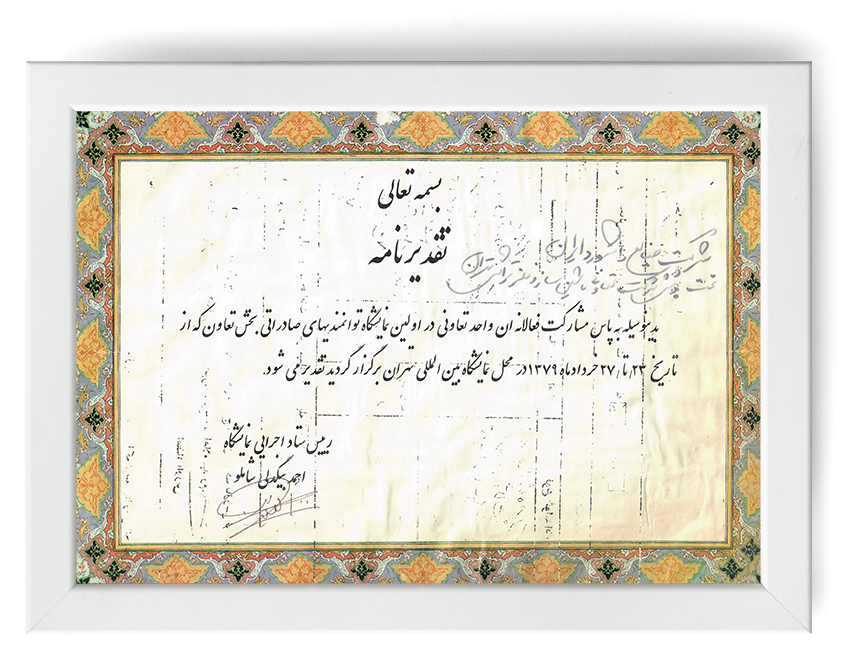 بسمه تعالی
تقدیرنامه
شرکت
بدینوسیله به پاس مشارکت فعالانه آن واحد تعاونی در اولین نمایشگاه توانمندیهای صادراتی بخش تعاون که از
تاریخ ۲۳ تا ۲۷ خرداد ماه ۱۳۷۹ در محل نمایشگاه بین المللی تهران برگزار گردید تقدیر می شود.
رییس ستاد اجرایی نمایشگاه
احمد بیگدلی شاملو